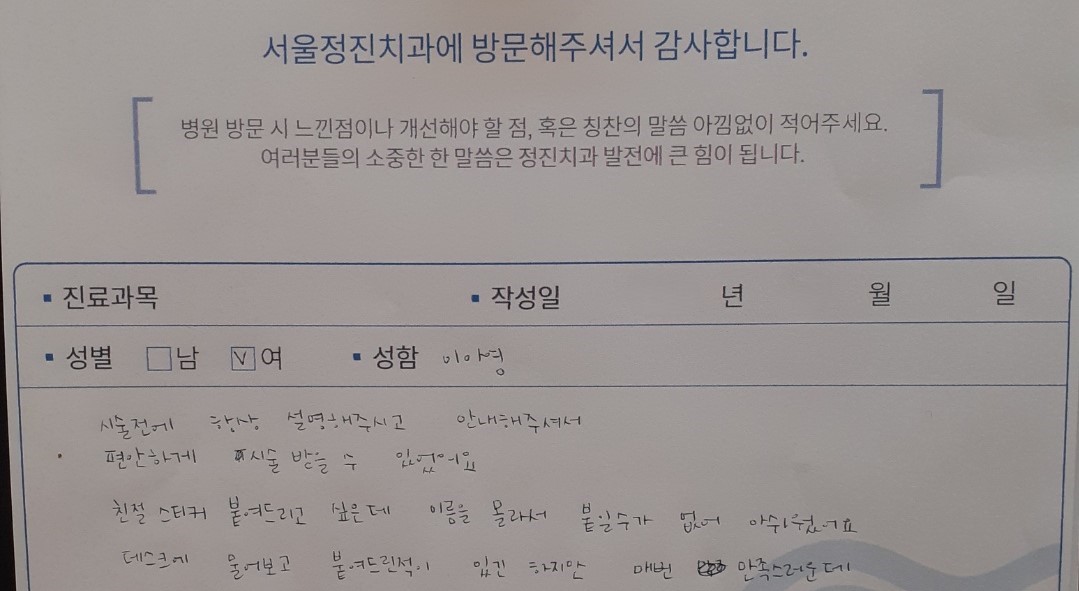 서울정진치과에 방문해주셔서 감사합니다.
병원 방문 시 느낀점이나 개선해야 할 점, 혹은 칭찬의 말씀 아낌없이 적어주세요.
여러분들의 소중한 한 말씀은 정진치과 발전에 큰 힘이 됩니다.
▪ 진료과목 ▪ 작성일 년 월 일
▪ 성별 □남 ☑여 ▪ 성함 이아영
시술전에 항상 설명해주시고 안내해주셔서
편안하게 시술 받을 수 있었어요
친절 스티커 붙여드리고 싶은데 이름을 몰라서 붙일수가 없어 아쉬웠어요
데스크에 물어보고 붙여드린적이 있긴 하지만 매번 만족스러운데